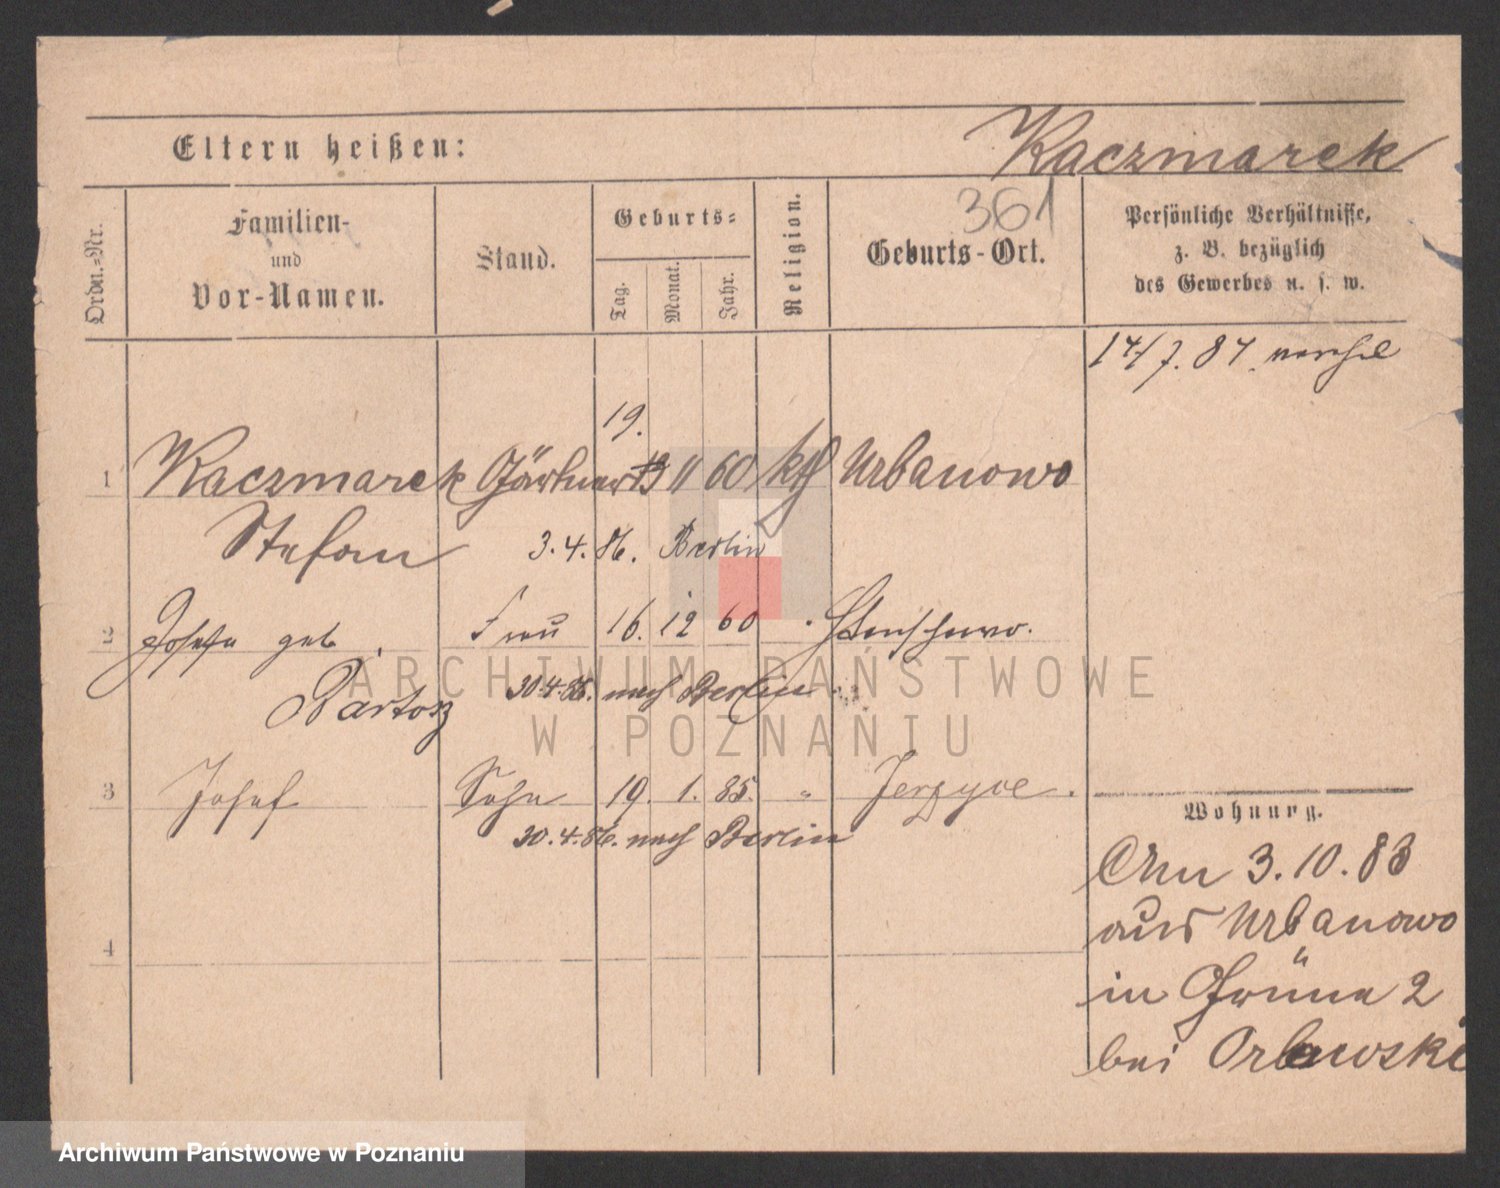 Eltern heißen:
Kaczmarek
361
Ordn.-Nr.
Familien-
und
Vor-Namen.
Stand.
Geburts-
Tag.
Monat.
Jahr.
Religion.
Geburts-Ort.
Persönliche Verhältnisse,
z. B. bezüglich
des Gewerbes u. s. w.
14/7. 84
19.
1 Kaczmarek Gärtner 11 60 kth Urbanowo
Stefan 3.4.86. Berlin
2 Josefa geb. Frau 16. 12 60 Stenschewo.
Bartosz 30.4.86. nach Berlin
3 Josef Sohn 19. 1. 85. " Jerzyce.
30.4.86. nach Berlin
4
Wohnung.
Am 3.10.83
aus Urbanowo
in Grüne 2
bei Orlewski
ARCHIWUM PAŃSTWOWE
W POZNANIU
Archiwum Państwowe w Poznaniu